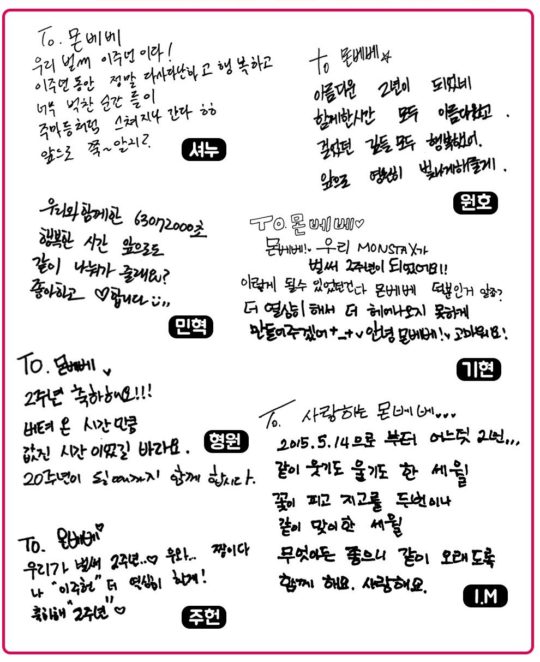 To. 몬베베
우리 벌써 이주년이다!
이주년동안 정말 다사다난하고 행복하고
너무 벅찬 순간들이
주마등처럼 스쳐지나간다 ㅎㅎ
앞으로 쭉~ 알지?
셔누
to 몬베베☆
아름다운 2년이 되었네
함께한시간 모두 아름다웠고.
걸었던 길들 모두 행복했어.
앞으로 영원히 빛나게해줄게.
원호
우리와 함께한 63072000초
행복한 시간 앞으로도
같이 나눠가 줄래요?
좋아하고 ♡합니다
민혁
To 몬베베♡
몬베베!♥ 우리 MONSTA X가
벌써 2주년이 되었어요!!
이렇게 될수 있었던건 다 몬베베 덕분인거 알죠?
더 열심히 해서 더 헤어나오지 못하게
만들어주겠어 +_+♥ 안녕 몬베베!♥ 고마워요!
기현
To. 몬베베♥
2주년 축하해요!!!
버텨 온 시간만큼
값진 시간이었길 바라요.
20주년이 될때까지 함께 합시다.
형원
To. 사랑하는 몬베베...
2015.5.14으로 부터 어느덧 2년...
같이 웃기도 울기도 한 세월
꽃이 피고 지고를 두번이나
같이 맞이한 세월
무엇이든 좋으니 같이 오래도록
함께 해요. 사랑해요.
I.M
To. 몬베베♥
우리가 벌써 2주년..♡ 우와.. 짱이다
나 "이주헌" 더 열심히 할게!
축하해 "2주년"♡
주헌